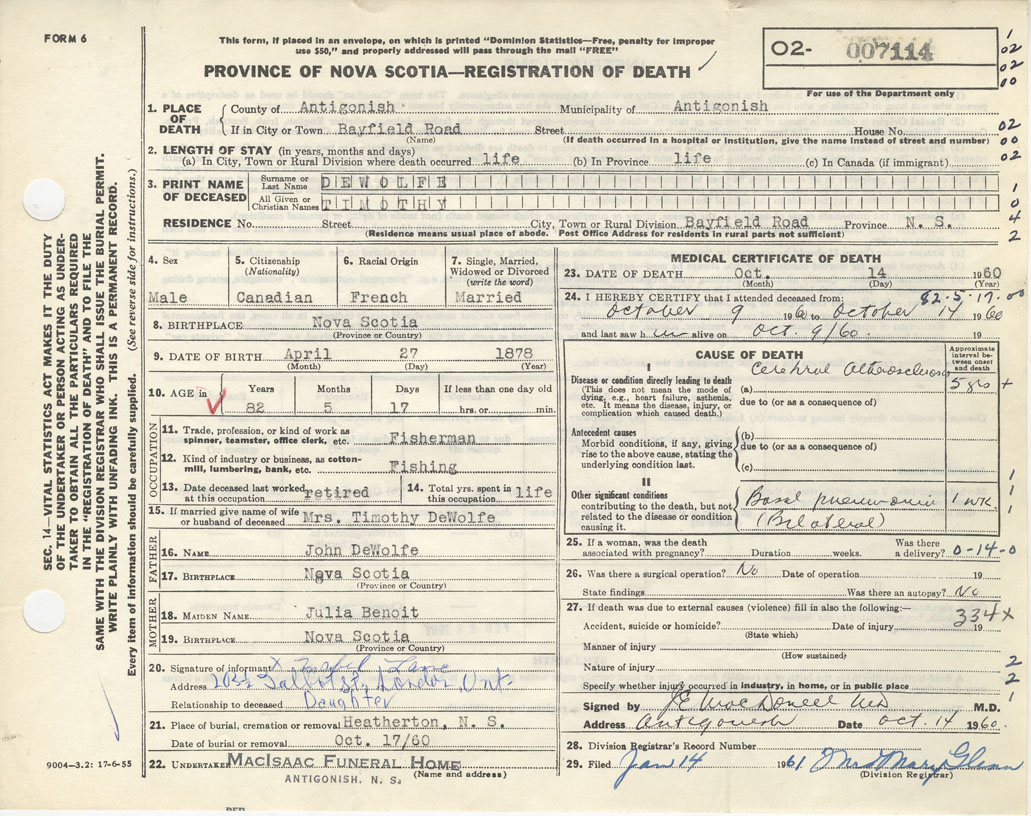 FORM 6
This form, if placed in an envelope, on which is printed "Dominion Statistics—Free, penalty for improper
use $50," and properly addressed will pass through the mail "FREE"
PROVINCE OF NOVA SCOTIA—REGISTRATION OF DEATH
O2- 007114
For use of the Department only
1
02
02
00
1. PLACE OF DEATH
County of Antigonish Municipality of Antigonish
If in City or Town Bayfield Road Street House No. 02
(Name) (If death occurred in a hospital or institution, give the name instead of street and number) 00
2. LENGTH OF STAY (in years, months and days)
(a) In City, Town or Rural Division where death occurred life (b) In Province life (c) In Canada (if immigrant) 02
3. PRINT NAME OF DECEASED
Surname or Last Name DEWOLFE 1
All Given or Christian Names TIMOTHY 0
RESIDENCE No. Street City, Town or Rural Division Bayfield Road Province N. S. 4
(Residence means usual place of abode. Post Office Address for residents in rural parts not sufficient) 2
4. Sex
Male
5. Citizenship
(Nationality)
Canadian
6. Racial Origin
French
7. Single, Married,
Widowed or Divorced
(write the word)
Married
8. BIRTHPLACE Nova Scotia
(Province or Country)
9. DATE OF BIRTH April 27 1878
(Month) (Day) (Year)
10. AGE in
Years Months Days If less than one day old
82 5 17 hrs. or min.
OCCUPATION
11. Trade, profession, or kind of work as
spinner, teamster, office clerk, etc. Fisherman
12. Kind of industry or business, as cotton-
mill, lumbering, bank, etc. Fishing
13. Date deceased last worked
at this occupation retired
14. Total yrs. spent in
this occupation life
15. If married give name of wife
or husband of deceased Mrs. Timothy DeWolfe
FATHER
16. NAME John DeWolfe
17. BIRTHPLACE Nova Scotia
(Province or Country)
MOTHER
18. MAIDEN NAME Julia Benoit
19. BIRTHPLACE Nova Scotia
(Province or Country)
20. Signature of informant X Lane
Address Talbot St, London, Ont.
Relationship to deceased Daughter
21. Place of burial, cremation or removal Heatherton, N. S.
Date of burial or removal Oct. 17/60
22. UNDERTAKER MACISAAC FUNERAL HOME
ANTIGONISH, N. S. (Name and address)
MEDICAL CERTIFICATE OF DEATH
23. DATE OF DEATH Oct. 14 1960
(Month) (Day) (Year)
82-5-17-00
24. I HEREBY CERTIFY that I attended deceased from:
October 9 1960 to October 14 1960
and last saw him alive on Oct. 9/60. 19
CAUSE OF DEATH
Approximate
interval be-
tween onset
and death
I
Disease or condition directly leading to death
(This does not mean the mode of
dying, e.g., heart failure, asthenia,
etc. It means the disease, injury, or
complication which caused death.)
(a) Cerebral Atherosclerosis 5 yrs +
due to (or as a consequence of)
Antecedent causes
Morbid conditions, if any, giving
rise to the above cause, stating the
underlying condition last.
(b)
due to (or as a consequence of)
(c)
II
Other significant conditions
contributing to the death, but not
related to the disease or condition
causing it.
Basal pneumonia 1 wk.
(Bilateral)
1
1
1
25. If a woman, was the death
associated with pregnancy? Duration weeks. Was there
a delivery? 0-14-0
26. Was there a surgical operation? No Date of operation 19
State findings Was there an autopsy? No
27. If death was due to external causes (violence) fill in also the following:—
334x
Accident, suicide or homicide? Date of injury 19
(State which)
Manner of injury
(How sustained)
Nature of injury 2
Specify whether injury occurred in industry, in home, or in public place 2
Signed by J E MacDonell MD M.D. 1
Address Antigonish Date Oct. 14 1960.
28. Division Registrar's Record Number
29. Filed Jan 14 1961 Mrs Mary Glenn
(Division Registrar)
SEC. 14—VITAL STATISTICS ACT MAKES IT THE DUTY
OF THE UNDERTAKER OR PERSON ACTING AS UNDER-
TAKER TO OBTAIN ALL THE PARTICULARS REQUIRED
IN THE "REGISTRATION OF DEATH" AND TO FILE THE
SAME WITH THE DIVISION REGISTRAR WHO SHALL ISSUE THE BURIAL PERMIT.
WRITE PLAINLY WITH UNFADING INK. THIS IS A PERMANENT RECORD.
Every item of information should be carefully supplied. (See reverse side for instructions.)
9004—3.2: 17-6-55